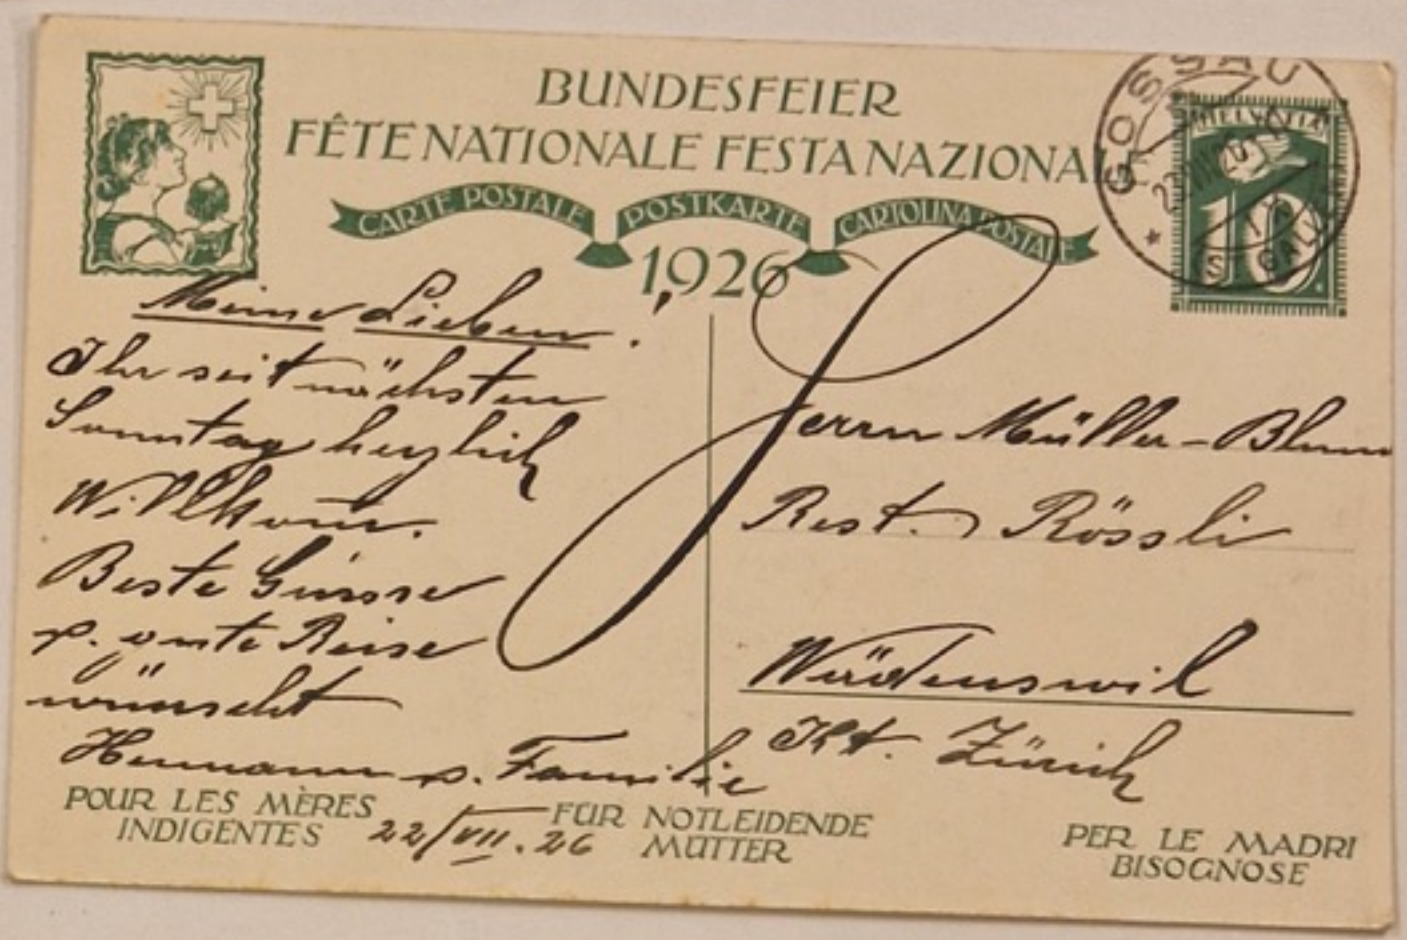 BUNDESFEIER
FÊTE NATIONALE FESTA NAZIONALE
CARTE POSTALE POSTKARTE CARTOLINA POSTALE
1926
GOSSAU
(ST. GALLEN)
HELVETIA
10
Meine Lieben.
Ihr seit nächsten
Sonntag herzlich
Willkom.
Beste Grüsse
p. gute Reise
wünscht
Hermann p. Familie
22/VII.26
Herrn Müller-Blum
Rest. Rössli
Wädenswil
Kt. Zürich
POUR LES MÈRES
INDIGENTES
FÜR NOTLEIDENDE
MÜTTER
PER LE MADRI
BISOGNOSE